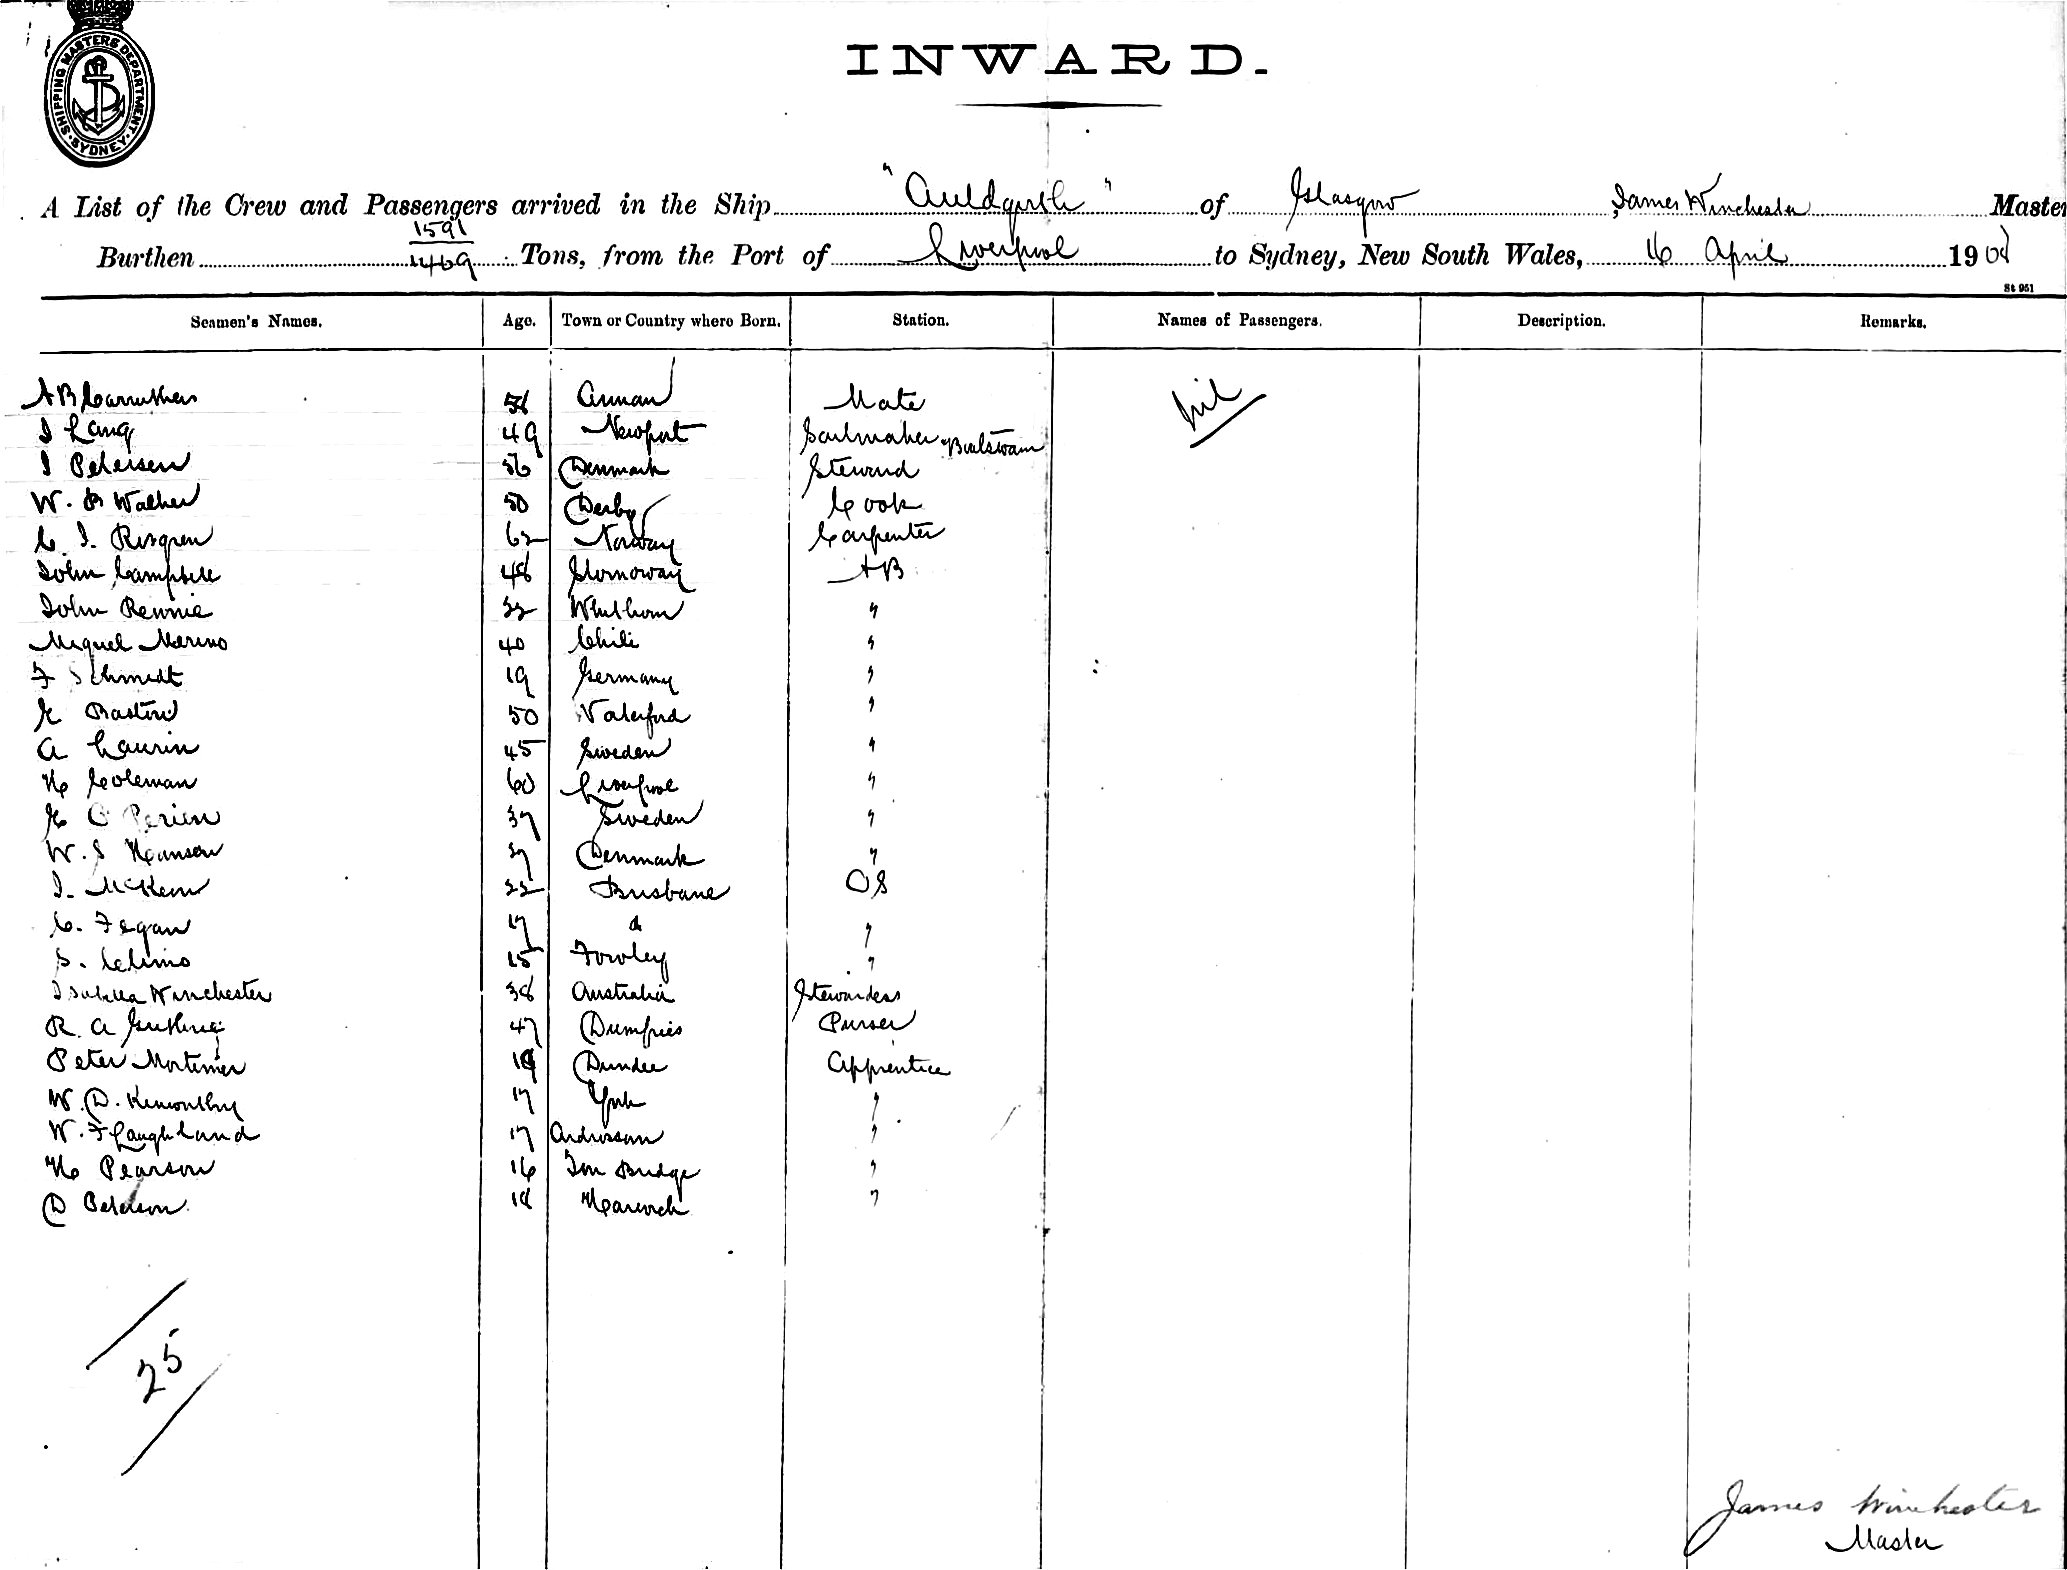 SHIPPING MASTERS DEPARTMENT. SYDNEY.
INWARD.
A List of the Crew and Passengers arrived in the Ship "Auldgirth" of Glasgow James Winchester Master
1591
Burthen 1469 Tons, from the Port of Liverpool to Sydney, New South Wales, 16 April 1908
St 951
Seamen's Names. Age. Town or Country where Born. Station. Names of Passengers. Description. Remarks.
A B Carruthers Annan Mate Nil
J Lang 49 Newport Sailmaker & Boatswain
J Petersen 56 Denmark Steward
W. B Walker 50 Derby Cook
C. J. Risgren 62 Norway Carpenter
John Campbell 48 Stornoway AB
John Rennie 32 Whithorn "
Miguel Merino 40 Chili "
F Schmidt 19 Germany "
G 50 Waterford "
A Laurin 45 Sweden "
H Coleman 60 Liverpool "
G 37 Sweden "
W. S Hansen 37 Denmark "
J. McKern 22 Brisbane OS
C. Fegan 17 do "
S. 15 Fowley "
Isabella Winchester 38 Australia Stewardess
R. A Guthrie 47 Dumfries Purser
Peter Mortimer Dundee Apprentice
W. D. Kenworthy 17 York "
W. F Laughland 17 Ardrossan "
H Pearson 16 Ton Bridge "
D 18 Harwich "
25
James Winchester
Master